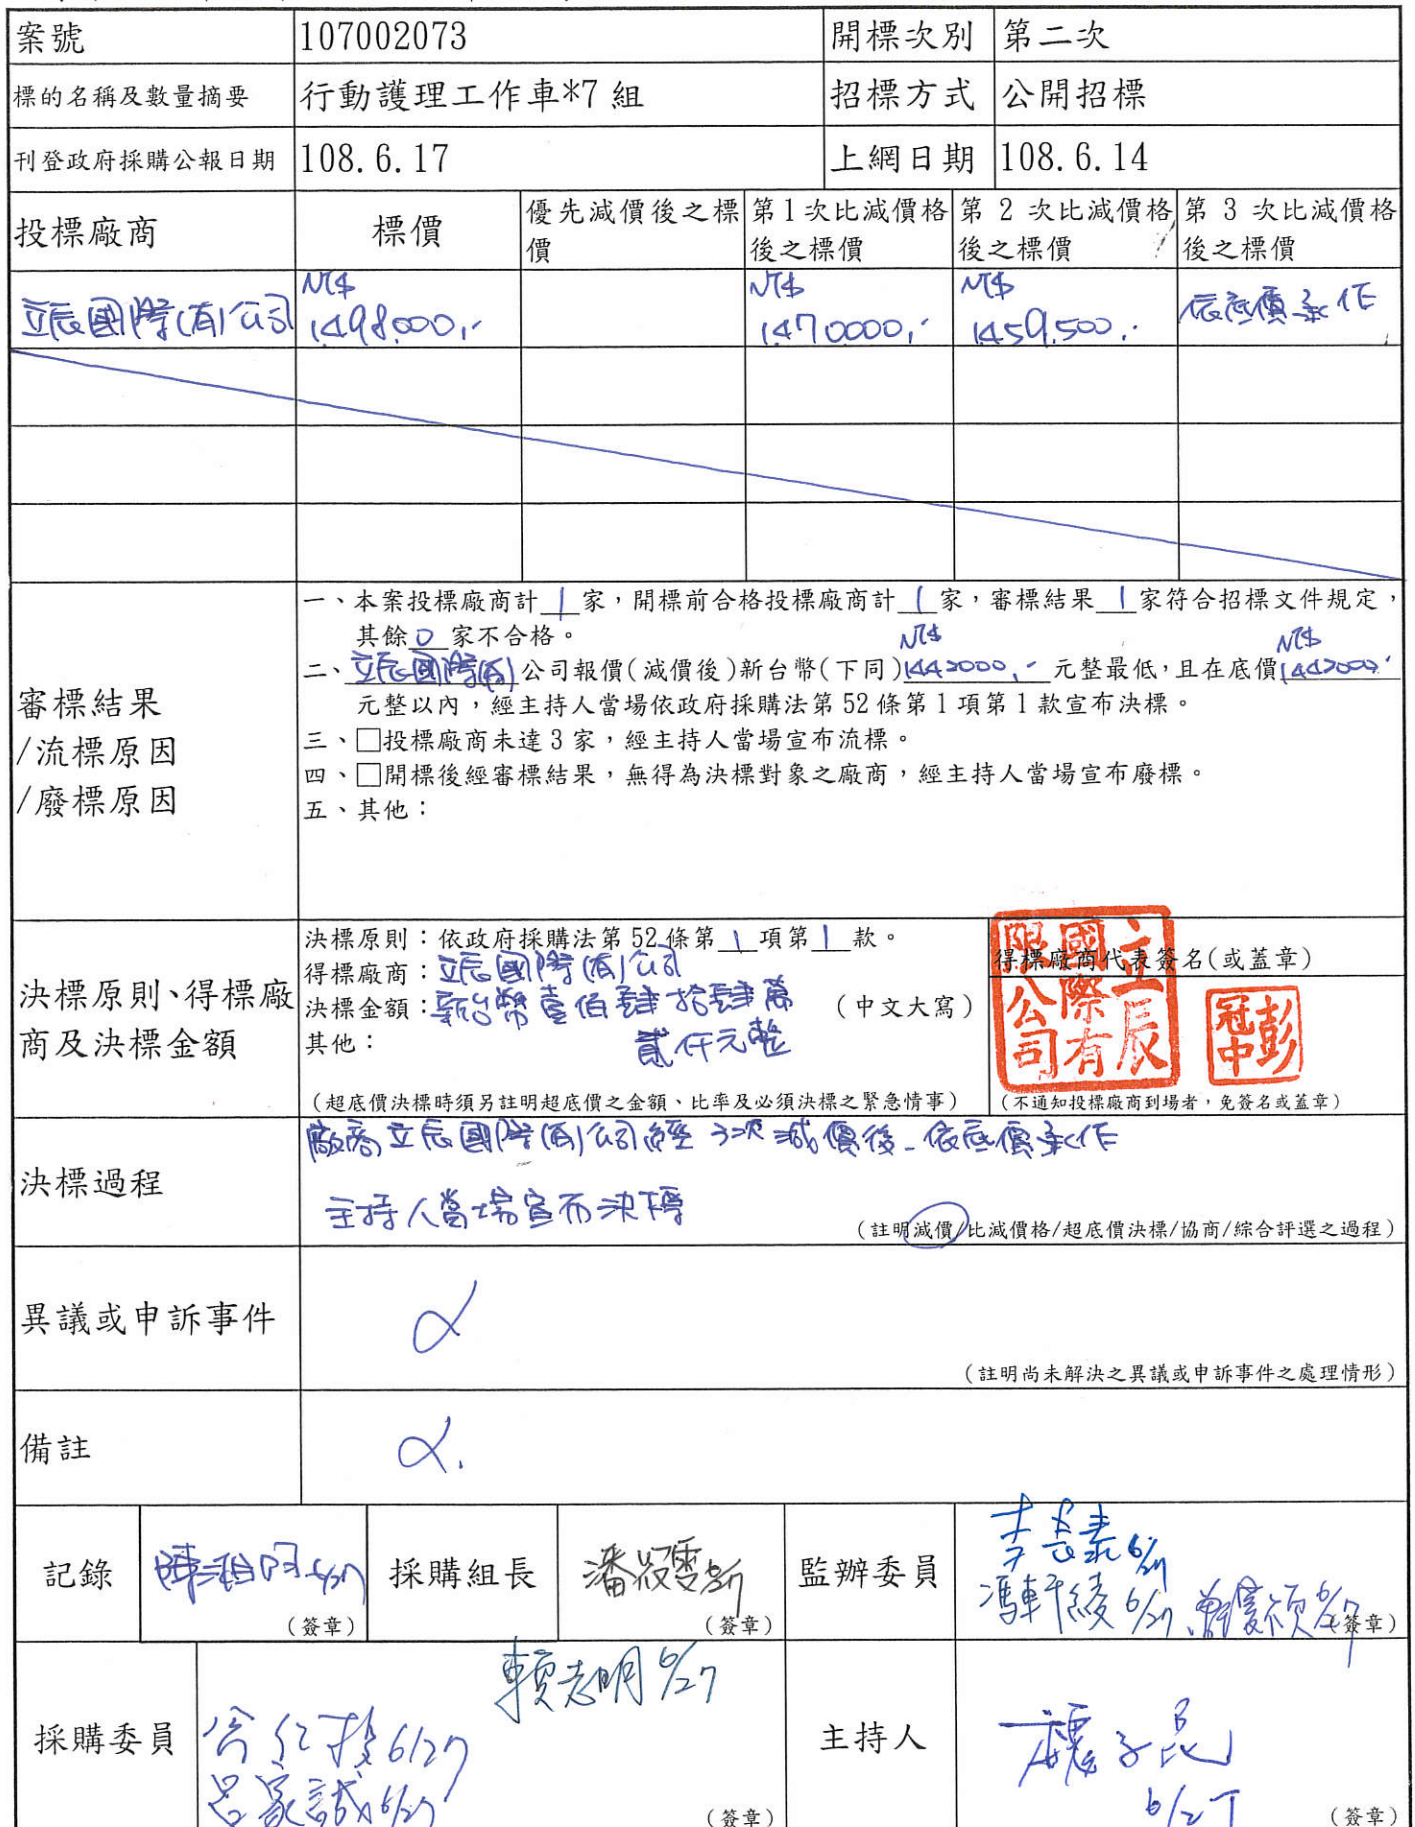 案號 107002073 開標次別 第二次
標的名稱及數量摘要 行動護理工作車*7 組 招標方式 公開招標
刊登政府採購公報日期 108.6.17 上網日期 108.6.14
投標廠商 標價 優先減價後之標價 第1次比減價格後之標價 第 2 次比減價格後之標價 第 3 次比減價格後之標價
立辰國際(有)公司 NT$ 1,498,000,- NT$ 1,470,000,- NT$ 1,459,500,- 依底價承作
審標結果
/流標原因
/廢標原因
一、本案投標廠商計 1 家，開標前合格投標廠商計 1 家，審標結果 1 家符合招標文件規定，
其餘 0 家不合格。
二、立辰國際(有)公司報價(減價後)新台幣(下同) NT$ 1442000,- 元整最低，且在底價 NT$ 1442000,-
元整以內，經主持人當場依政府採購法第 52 條第 1 項第 1 款宣布決標。
三、□投標廠商未達 3 家，經主持人當場宣布流標。
四、□開標後經審標結果，無得為決標對象之廠商，經主持人當場宣布廢標。
五、其他：
決標原則、得標廠
商及決標金額
決標原則：依政府採購法第 52 條第 1 項第 1 款。
得標廠商：立辰國際(有)公司
決標金額：新台幣壹佰肆拾肆萬 (中文大寫)
其他： 貳仟元整
(超底價決標時須另註明超底價之金額、比率及必須決標之緊急情事)
得標廠商代表簽名(或蓋章)
立辰國際有限公司
彭冠中
(不通知投標廠商到場者，免簽名或蓋章)
決標過程
廠商立辰國際(有)公司經 3次減價後-依底價承作
主持人當場宣布決標
(註明減價/比減價格/超底價決標/協商/綜合評選之過程)
異議或申訴事件
(註明尚未解決之異議或申訴事件之處理情形)
備註
記錄 6/27 (簽章) 採購組長 6/27 (簽章) 監辦委員 6/27
6/27 6/27 (簽章)
採購委員 賴志明 6/27
6/27
呂家誠 6/27 (簽章)
主持人
6/27 (簽章)